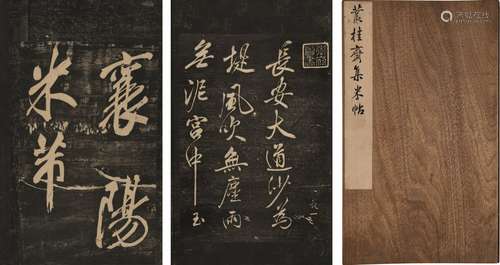 襄陽
米芾
長安大道沙為
堤風吹無塵雨
無泥宮中玉
叢桂齋集米帖